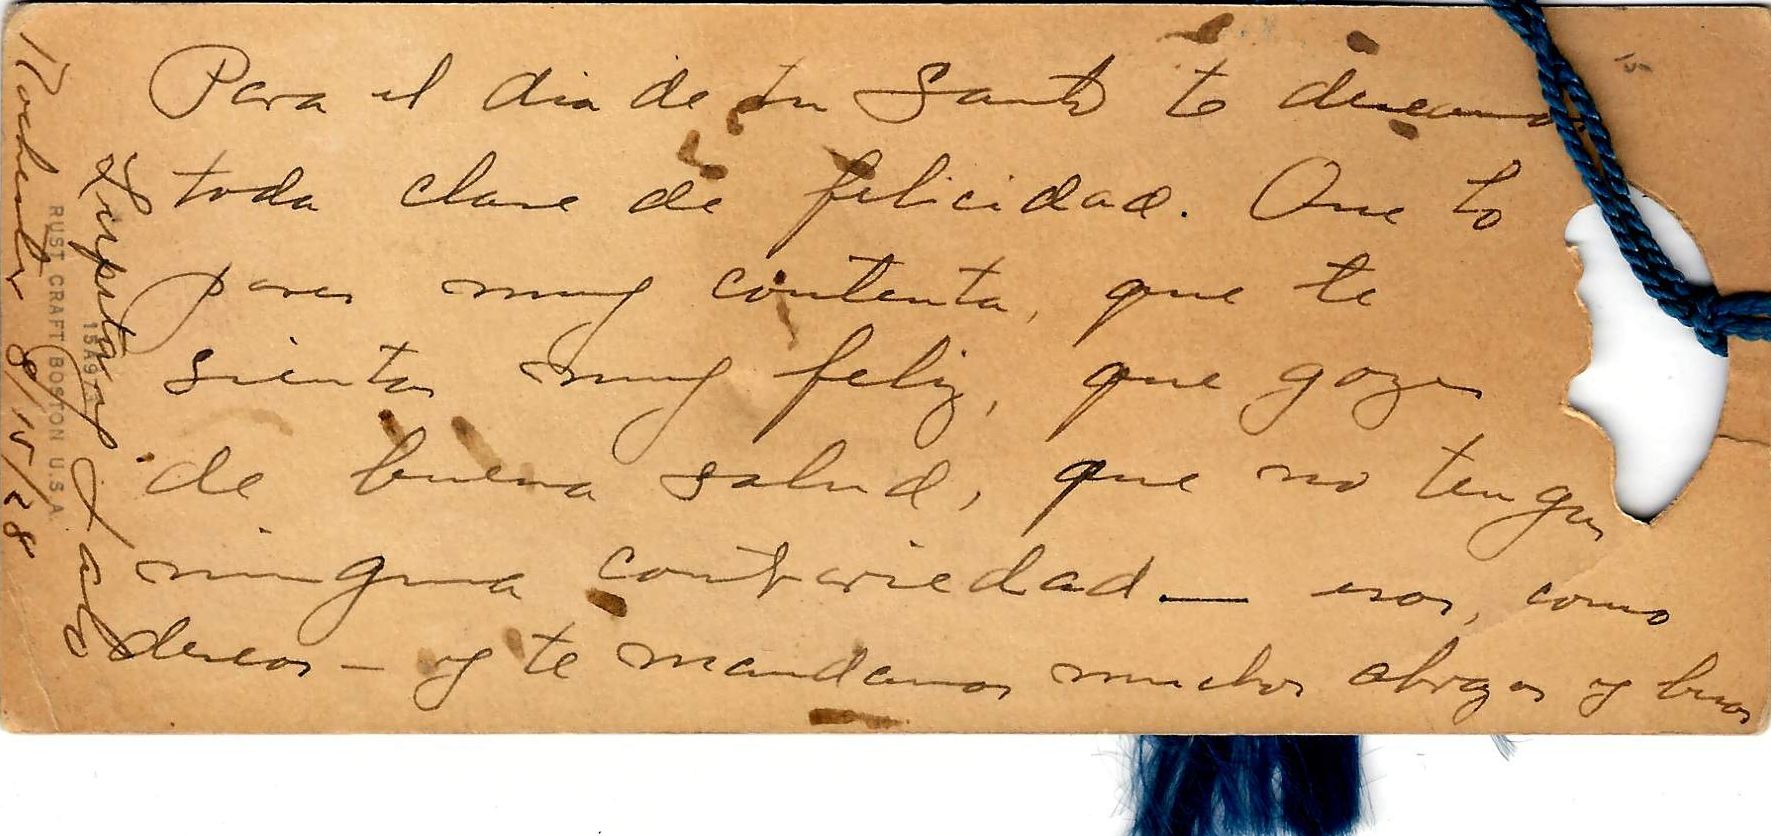 Para el dia de tu Santo te deseamos
toda clase de felicidad. Que lo
pases muy contenta, que te
sientas muy feliz, que gozes
de buena salud, que no tengas
ninguna contrariedad — esos, como
deseos — y te mandamos muchos abrazos y besos
Rochester 8/15/28
RUST CRAFT BOSTON U.S.A.
15